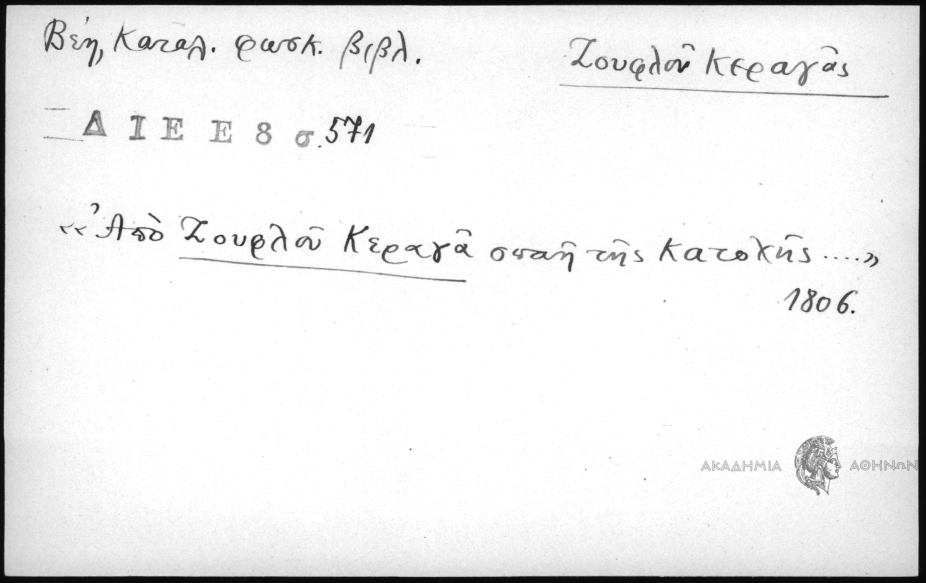 Βέη, Καταλ. φωσκ. βιβλ.
Ζουφλοῦ Κεραγᾶς
Δ Ι Ε Ε 8 σ. 571
«Ἀπὸ Ζουφλοῦ Κεραγᾶ σπαῆ τῆς Κατοχῆς ....»
1806.
ΑΚΑΔΗΜΙΑ ΑΘΗΝΩΝ